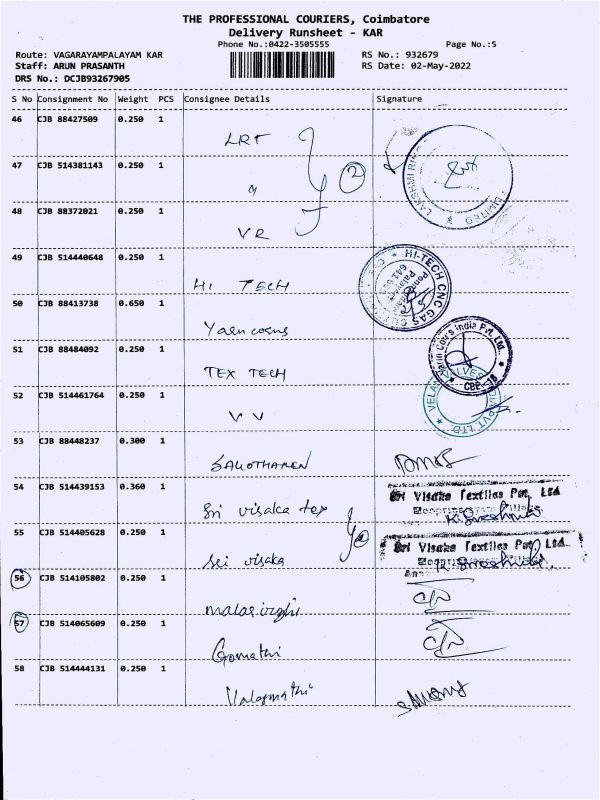 THE PROFESSIONAL COURIERS, Coimbatore
Delivery Runsheet - KAR
Phone No.:0422-3505555
Page No.:5
Route: VAGARAYAMPALAYAM KAR
RS No.: 932679
Staff: ARUN PRASANTH
RS Date: 02-May-2022
DRS No.: DCJB93267905
S No Consignment No Weight PCS Consignee Details Signature
46 CJB 88427509 0.250 1
LRT
47 CJB 514381143 0.250 1
2
LAKSHMI LIMITED
48 CJB 88372021 0.250 1
VR
49 CJB 514440648 0.250 1
HI TECH
HI-TECH CNC GAS
50 CJB 88413738 0.650 1
India Pvt. Ltd.
CBE-18
51 CJB 88484092 0.250 1
TEX TECH
52 CJB 514461764 0.250 1
VV
PVT LTD.
53 CJB 88448237 0.300 1
54 CJB 514439153 0.360 1
Sri visaka tex
Sri Visaka Textiles Pvt. Ltd
55 CJB 514405628 0.250 1
Sri visaka
Sri Visaka Textiles Pvt. Ltd.
56 CJB 514105802 0.250 1
57 CJB 514065609 0.250 1
Gomathi
58 CJB 514444131 0.250 1
Valarmathi